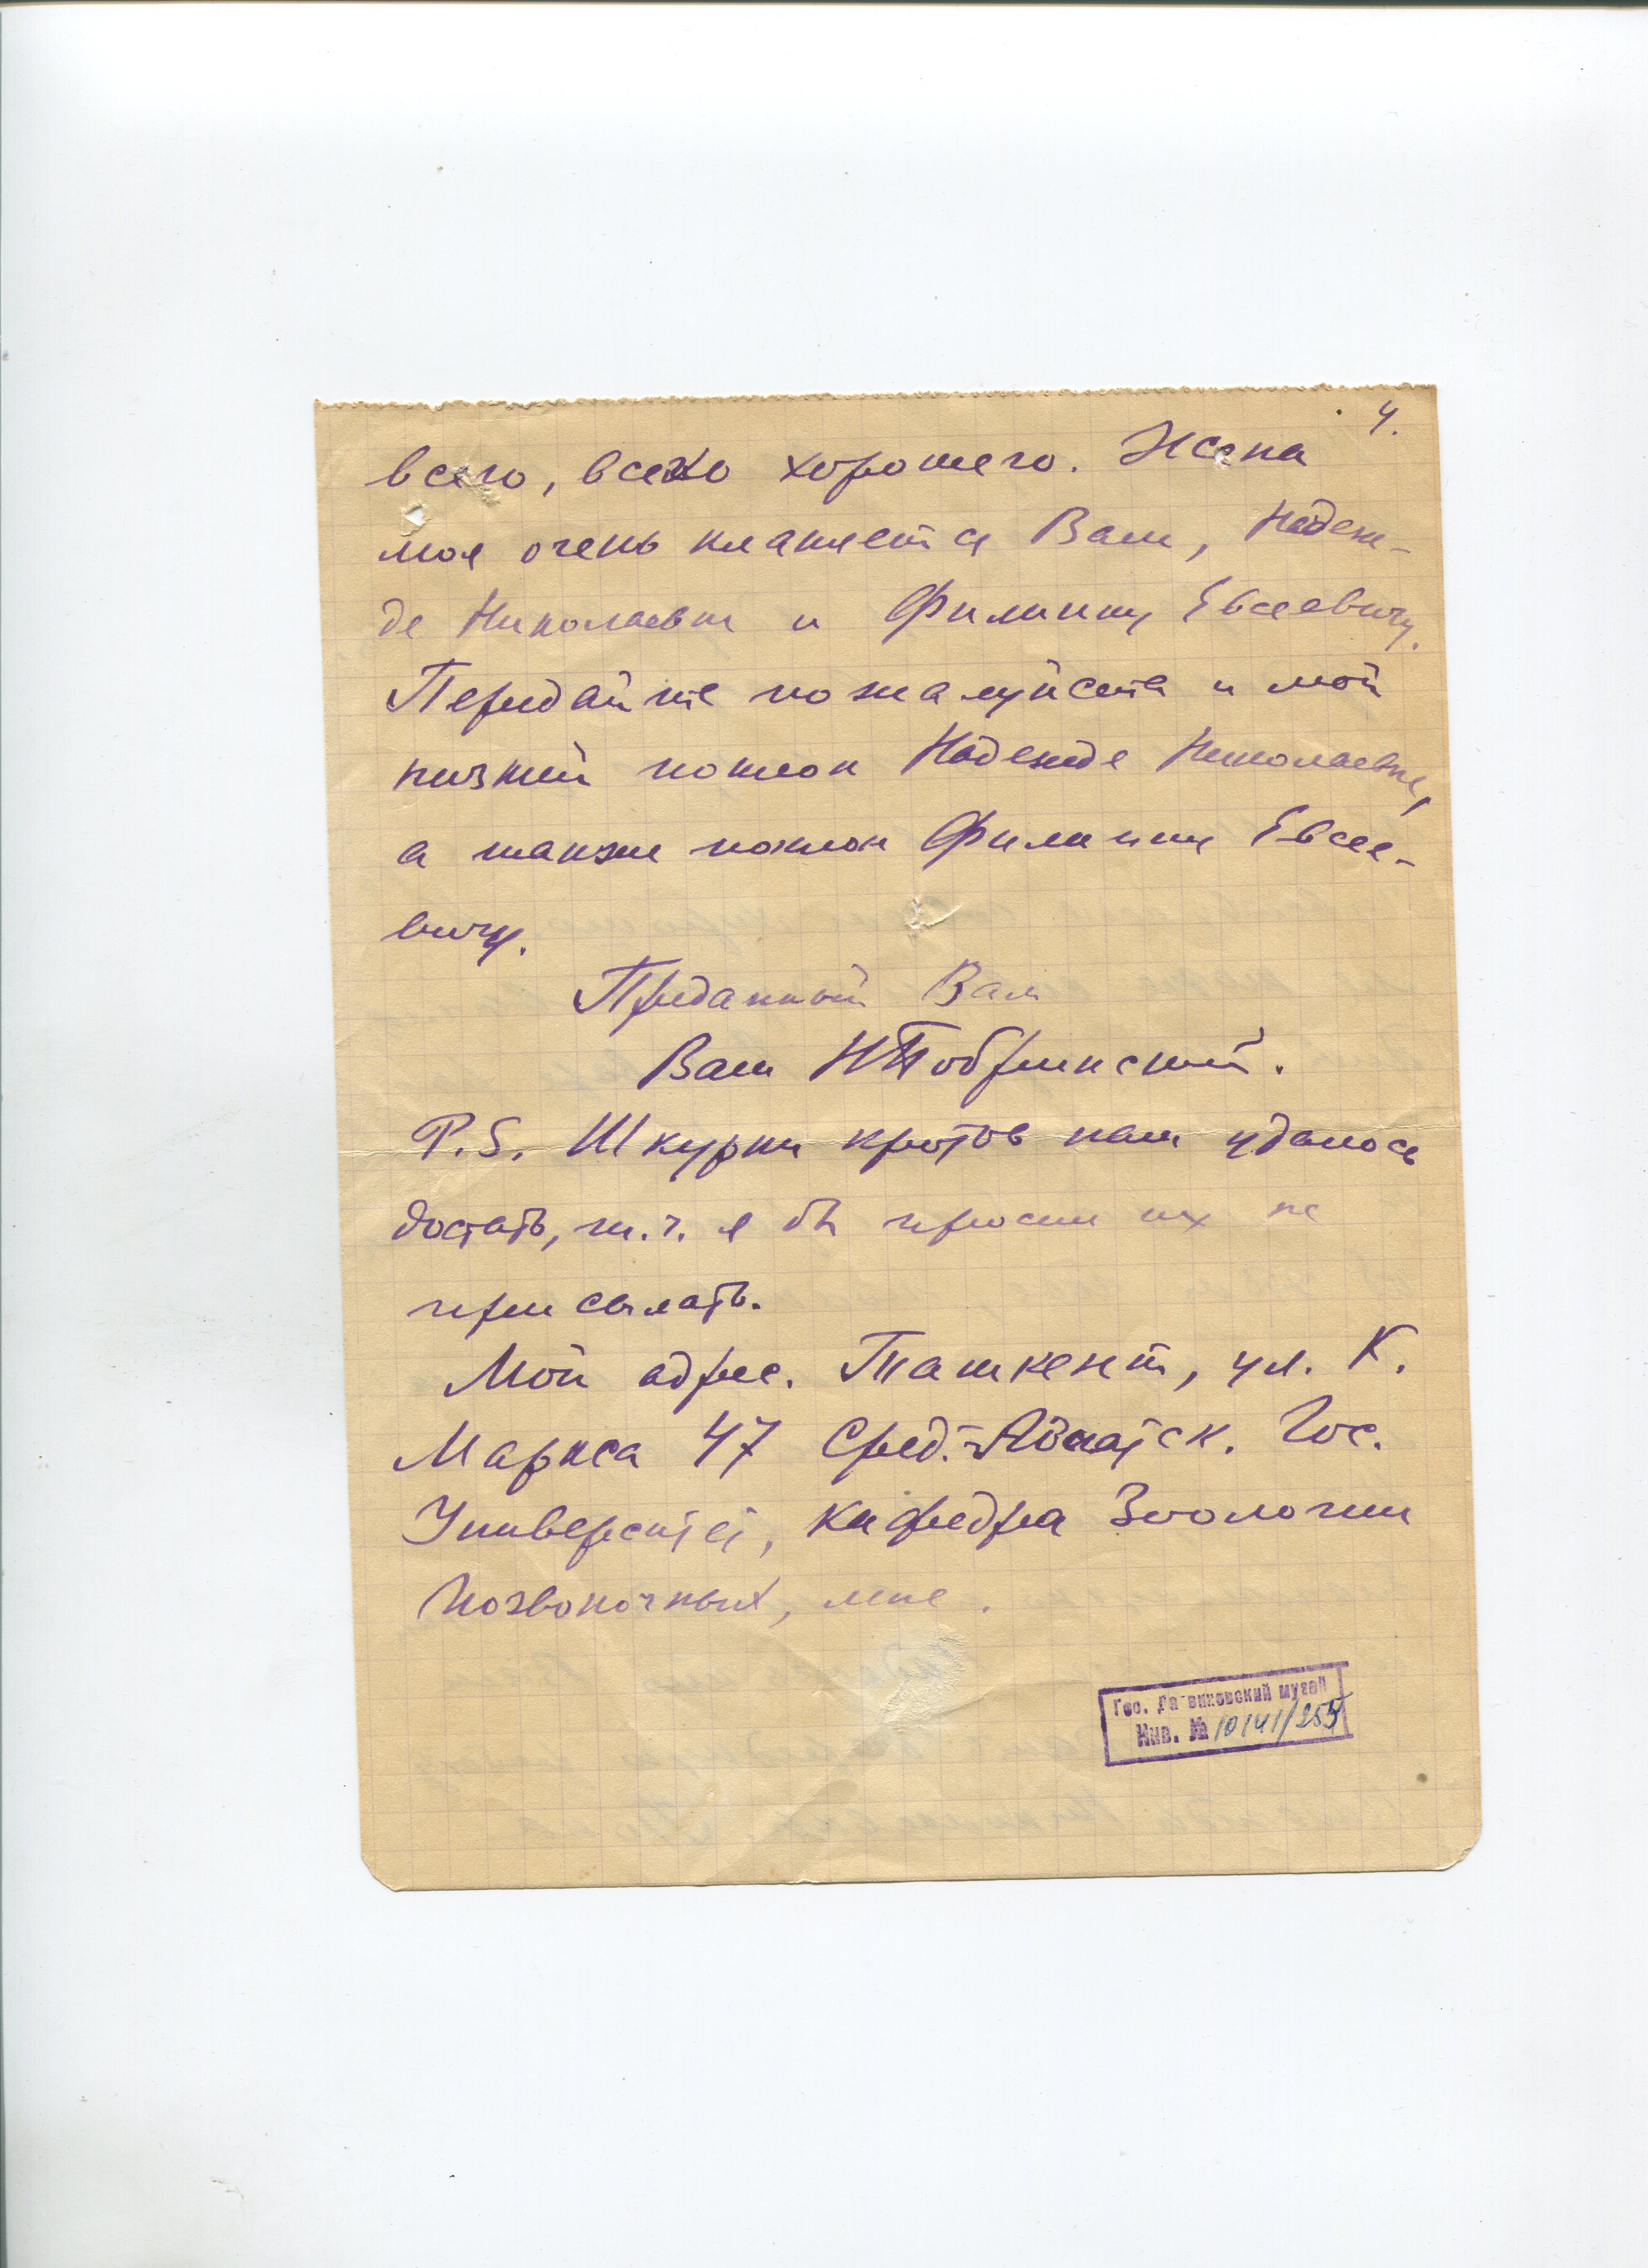 4.
всего, всего хорошего. Жена
моя очень кланяется Вам, Надеж-
де Николаевне и Филиппу Евсеевичу.
Передайте пожалуйста и мой
низкий поклон Надежде Николаевне,
а также поклон Филиппу Евсее-
вичу.
Преданный Вам
Ваш Н Бобринский.
P.S. Шкурки кротов нам удалось
достать, т.ч. я бы просил их не
присылать.
Мой адрес. Ташкент, ул. К.
Маркса 47 Сред.-Азиатск. Гос.
Университет, Кафедра Зоологии
Позвоночных, мне.
Гос. Дарвиновский музей
Инв. № 10141/255